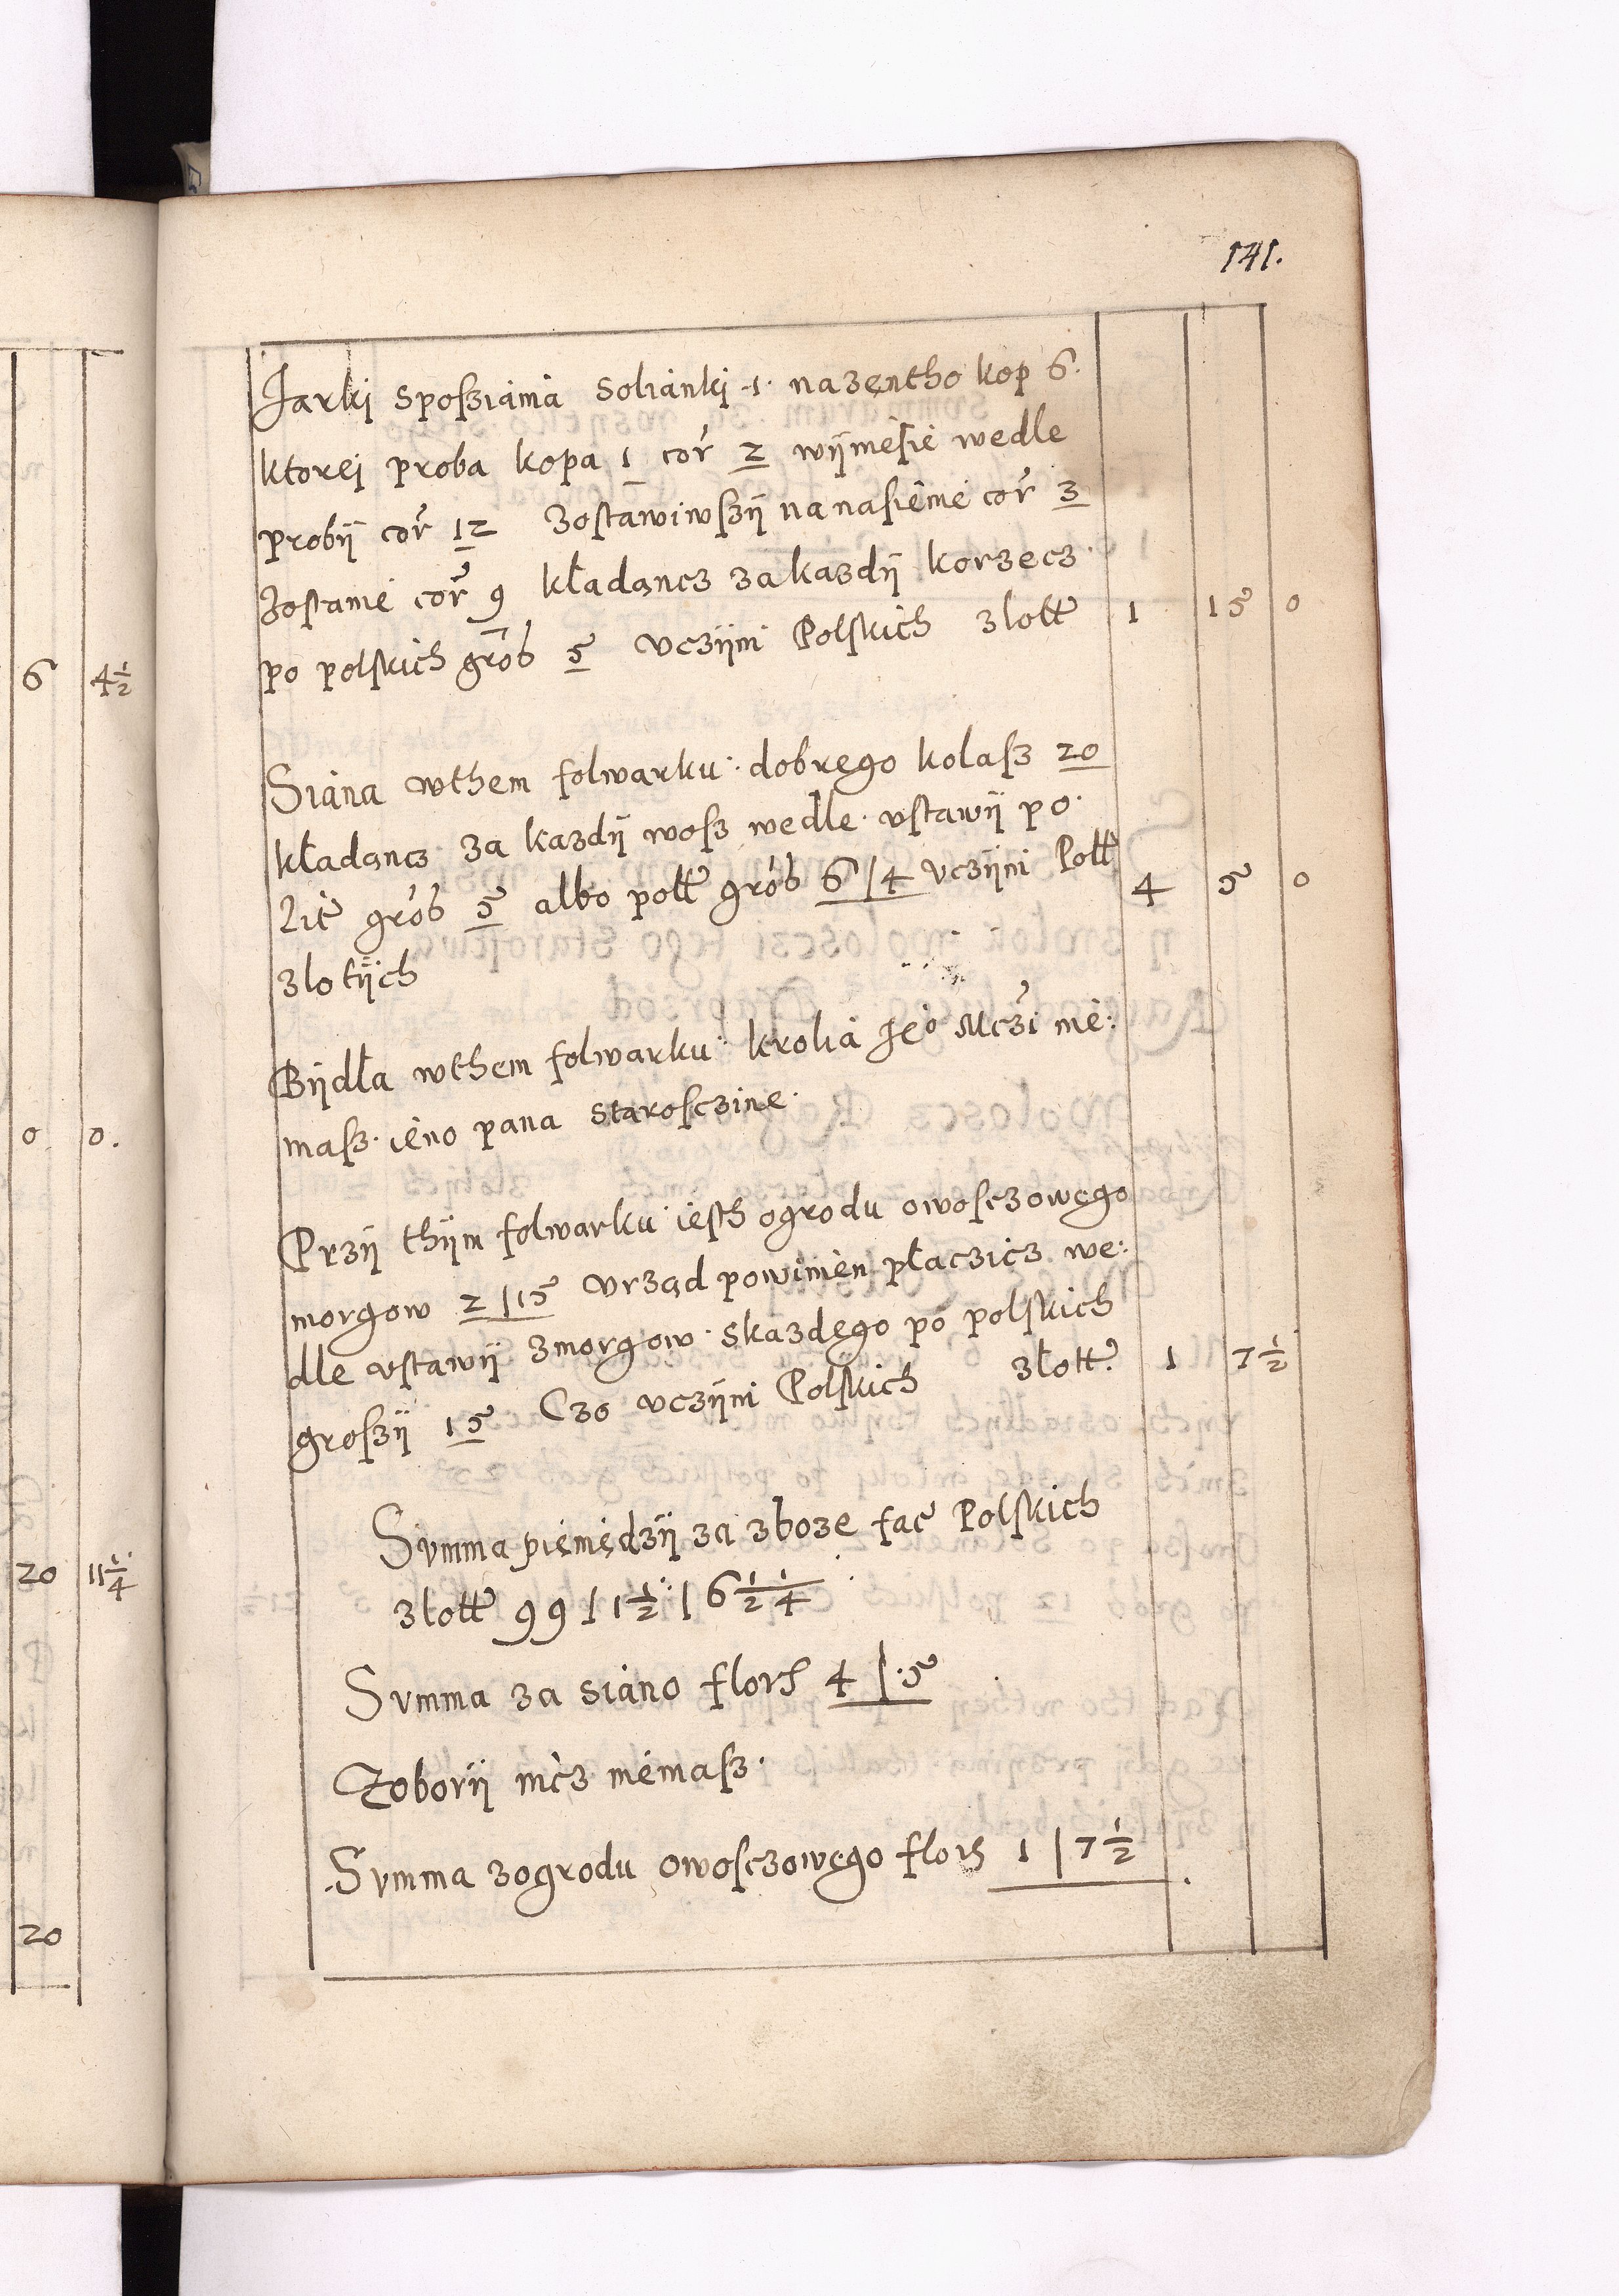 141.
Jarki sposziania solianki 1. nazentho kop 6.
ktorei proba kopa 1 cor 2 wijmesie wedle
probij cor 12 zostawiwszij na nasieme cor 3
zostanie cor 9 kładancz za kazdij korzecz
po polskich gros 5 vczijni Polskich zlott 1 15 0
Siana wthem folwarku dobrego kolasz 20
kładancz za kazdij wosz wedle vstawij po
Lit gros 5 albo polł gros 6 | 4 vczijni Poll 4 5 0
zlotijch
Bijdła wthem folwarku krolia Jeo Mczi nie:
masz ieno pana starosczine
Przij thijm folwarku iesth ogrodu owosczowego
morgow 2 | 15 vrząd powinien płaczicz we:
dle vstawij zmorgow skazdego po polskich
groszij 15 Czo vczijni Polskich złott 1 7 1/2
Summa pieniedzij za zboze fac Polskich
złott 99 | 1 1/2 | 6 1/2 1/4
Summa za siano flor 4 | 5
Zoborij nicz niemasz
Summa zogrodu owosczowego flor 1 | 7 1/2
6 4 1/2
0 0.
20 11 1/4
20